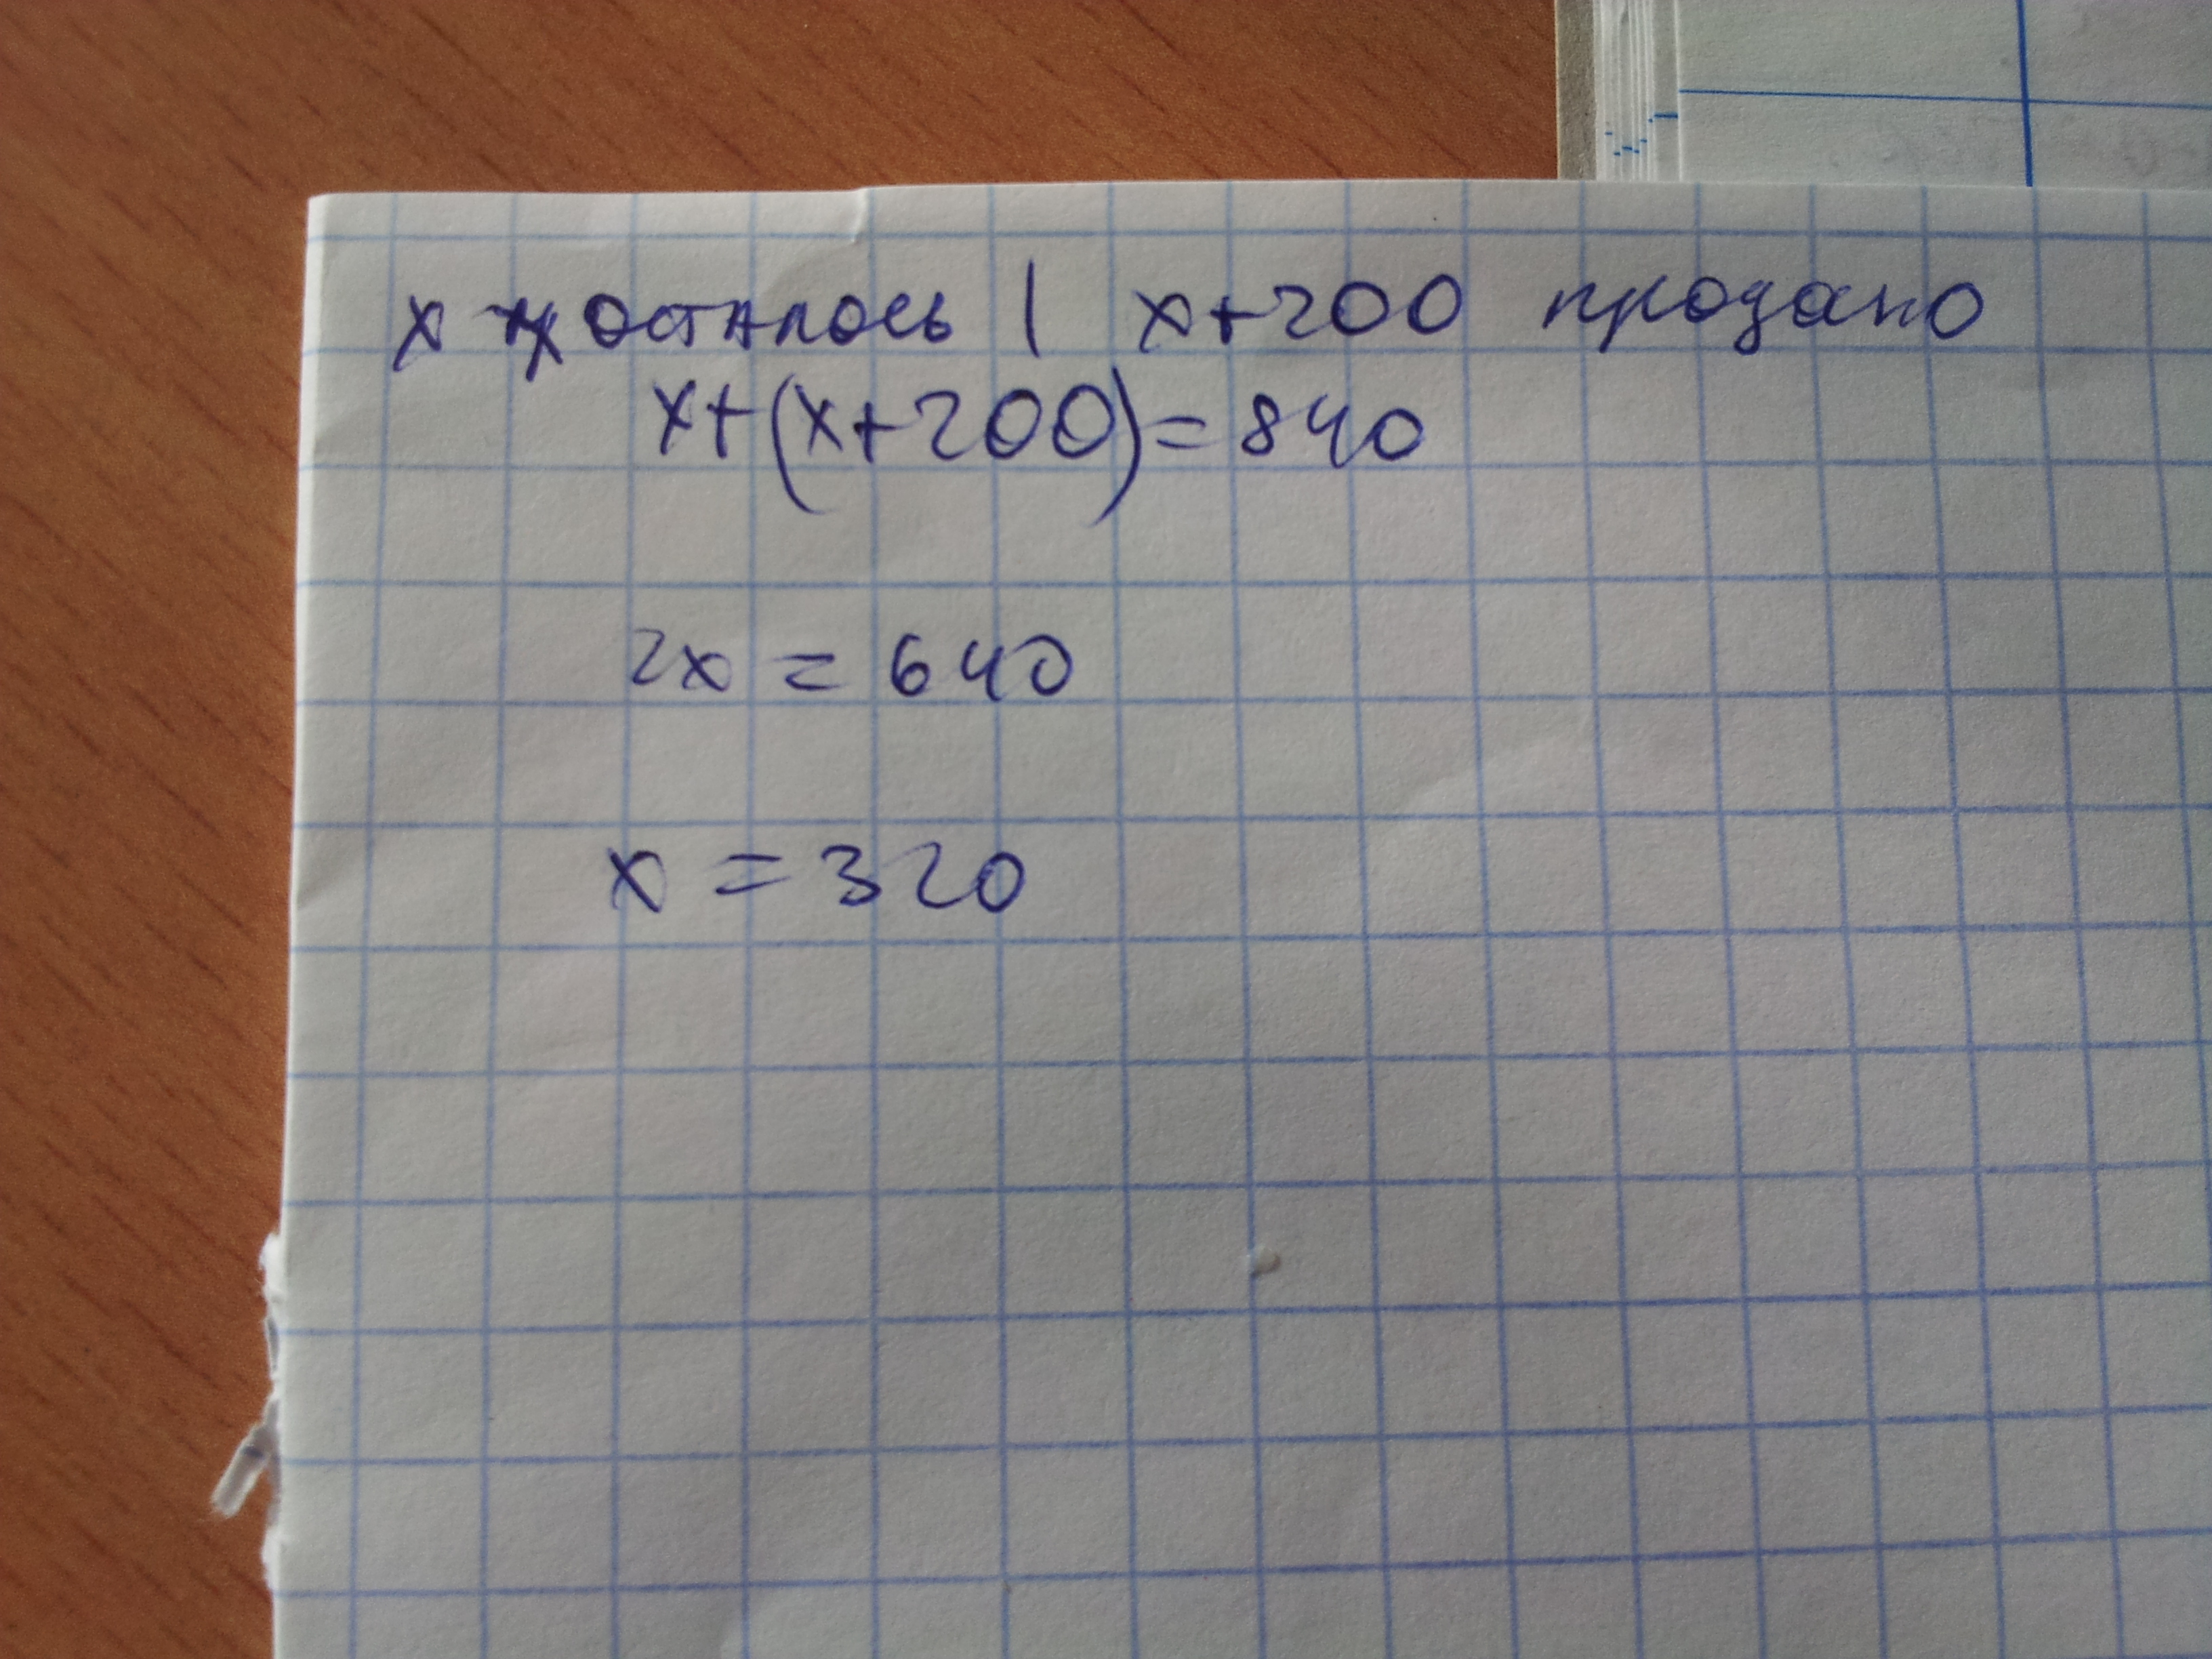 x осталось | x+200 продано
x+(x+200)=840
2x = 640
x = 320